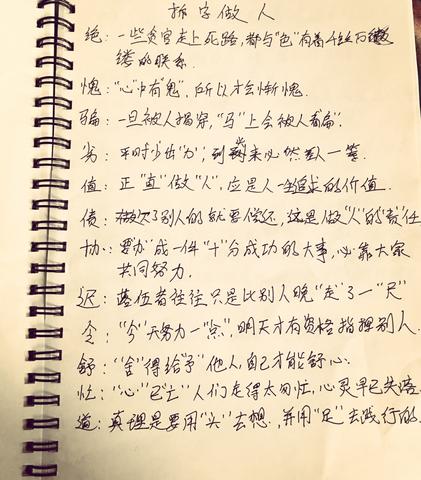 拆字做人
绝：一些贪官走上死路，都与"色"有着千丝万缕
缕的联系.
愧："心"中有"鬼"，所以才会惭愧.
骗：一旦被人揭穿，"马"上会被人看"扁".
劣：平时少出"力"，到来必然差人一等.
值：正"直"做"人"，应是人一生追求的价值.
债：欠了别人的就要偿还，这是做"人"的"责"任
协：要"办"成一件"十"分成功的大事，必靠大家
共同努力.
迟：落伍者往往只是比别人晚"走"了一"尺"
令："今"天努力一"点"，明天才有资格指挥别人.
舒："舍"得给"予"他人，自己才能舒心.
忙："心"已"亡"人们走得太匆忙，心灵早已失落.
道：真理是要用"头"去想，并用"足"去践行的.